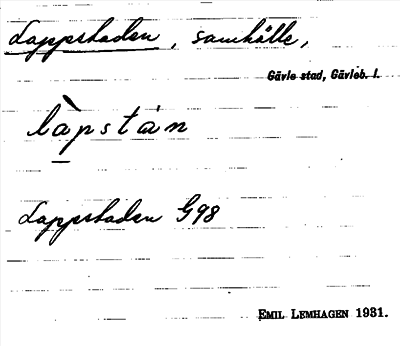 Lappstaden, samhälle,
Gävle stad, Gävleb. l.
làpstán
Lappstaden G98
EMIL LEMHAGEN 1931.